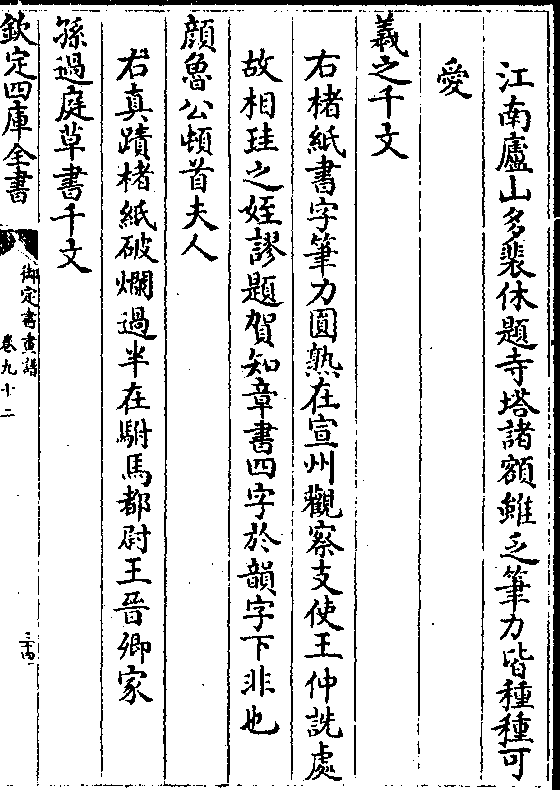 江南廬山多裴休題寺塔諸額雖乏筆力皆種種可
愛
羲之千文
右楮紙書字筆力圓熟在宣州觀察支使王仲詵處
故相珪之姪謬題賀知章書四字於韻字下非也
顔魯公頓首夫人
右真蹟楮紙破爛過半在駙馬都尉王晉卿家
孫過庭草書千文
欽定四庫全書
御定書畫譜
卷九十二